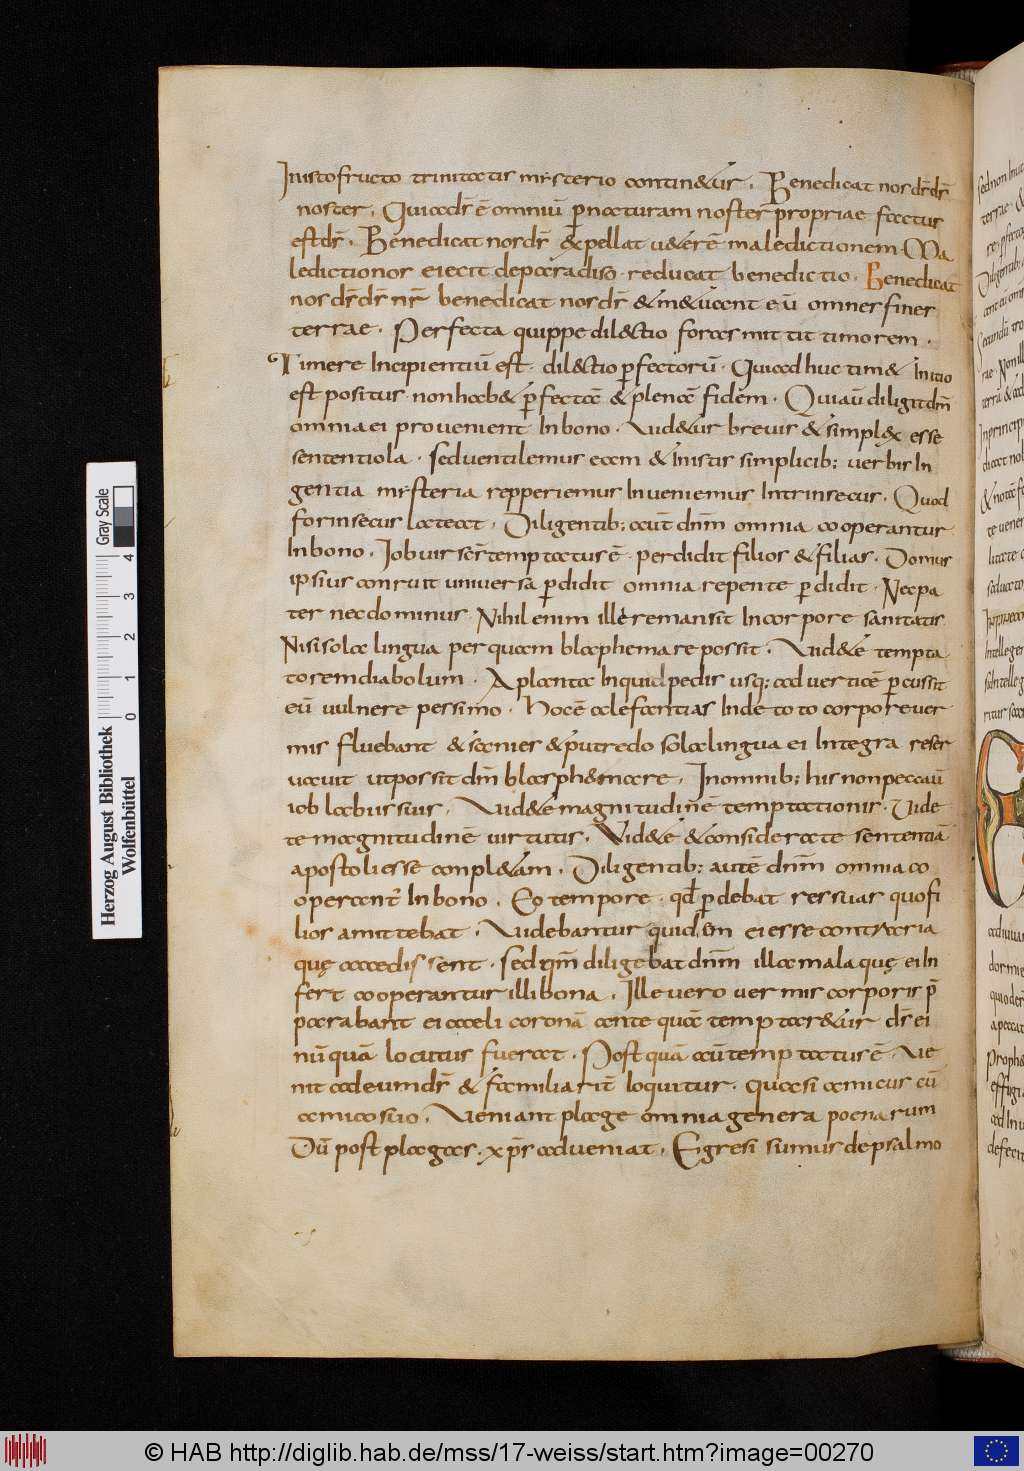 In isto fructo trinitatis mysterio contin&ur. Benedicat nos dš dš
noster. Quia dš ē omniū p naturam noster propriae factus
est dš. Benedicat nos dš & pellat u&erē maledictionem. Ma
ledictio nos eiecit de paradiso. reducat benedictio. Benedicat
nos dš dš nr̄ benedicat nos dš & m&uant eū omnes fines
terrae. Perfecta quippe dil&ctio foras mittit timorem.
Timere Incipientiū est. dil&ctio pfectorū. Qui ad huc tim& Initio
est positus. non hab& pfectā & plenā fidem. Qui aū diligit dm̄
omnia ei provenient In bono. Uid&ur brevis & simplex esse
sententiola. sed ventilemus eam & In istis simplicib; verbis In
gentia mysteria repperiemus Inveniemus Intrinsecus. Quod
forinsecus lateat. Diligentib; aut dnm̄ omnia cooperantur
In bono. Iob vir scs̄ temptatus ē. perdidit filios & filias. Domus
ipsius conruit universa pdidit omnia repente pdidit. Nec pa
ter nec dominus. Nihil enim ille remansit In corpore sanitatis
Nisi sola lingua per quam blasphemare possit. Uid&e tempta
torem diabolum. A planta Inquid pedis usq; ad verticē pcussit
eū vulnere pessimo. Hoc ē elefantias Inde toto corpore ver
mis fluebant & sanies & putredo sola lingua ei Integra reser
vavit ut possit dm̄ blasph&mare. In omnib; his non peccavit
iob labiis suis. Uid&e magnitudinē temptationis. Vide
te magnitudinē virtutis. Vid&e & considerate sententiā
apostoli esse conpl&am. Diligentib; autē dnm̄ omnia co
operant~ In bono. Eo tempore. qd pdebat res suas quo fi
lios amittebat. Videbantur quidem ei esse contraria
quę accedissent. sed qm̄ diligebat dnm̄ illa mala quę ei In
fert cooperantur illi bona. Ille vero vermis corporis p̄
parabant ei caeli coronā ante quā temptar&ur dš ei
nūquā locutus fuerat. Post quā aū temptatus ē. Ve
nit ad eum dš & familiaritē loquitur. quasi amicus cū
amico suo. Veniant plage omnia genera poenarum
Dū post plagas. xps̄ adveniat. Egresi sumus de psalmo
Herzog August Bibliothek
Wolfenbüttel
Gray Scale
0 1 2 3 4
© HAB http://diglib.hab.de/mss/17-weiss/start.htm?image=00270